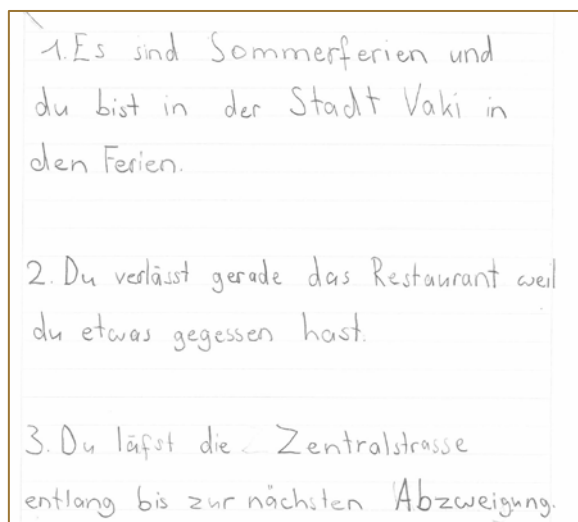 1. Es sind Sommerferien und
du bist in der Stadt Vaki in
den Ferien.
2. Du verlässt gerade das Restaurant weil
du etwas gegessen hast.
3. Du läfst die Zentralstrasse
entlang bis zur nächsten Abzweigung.